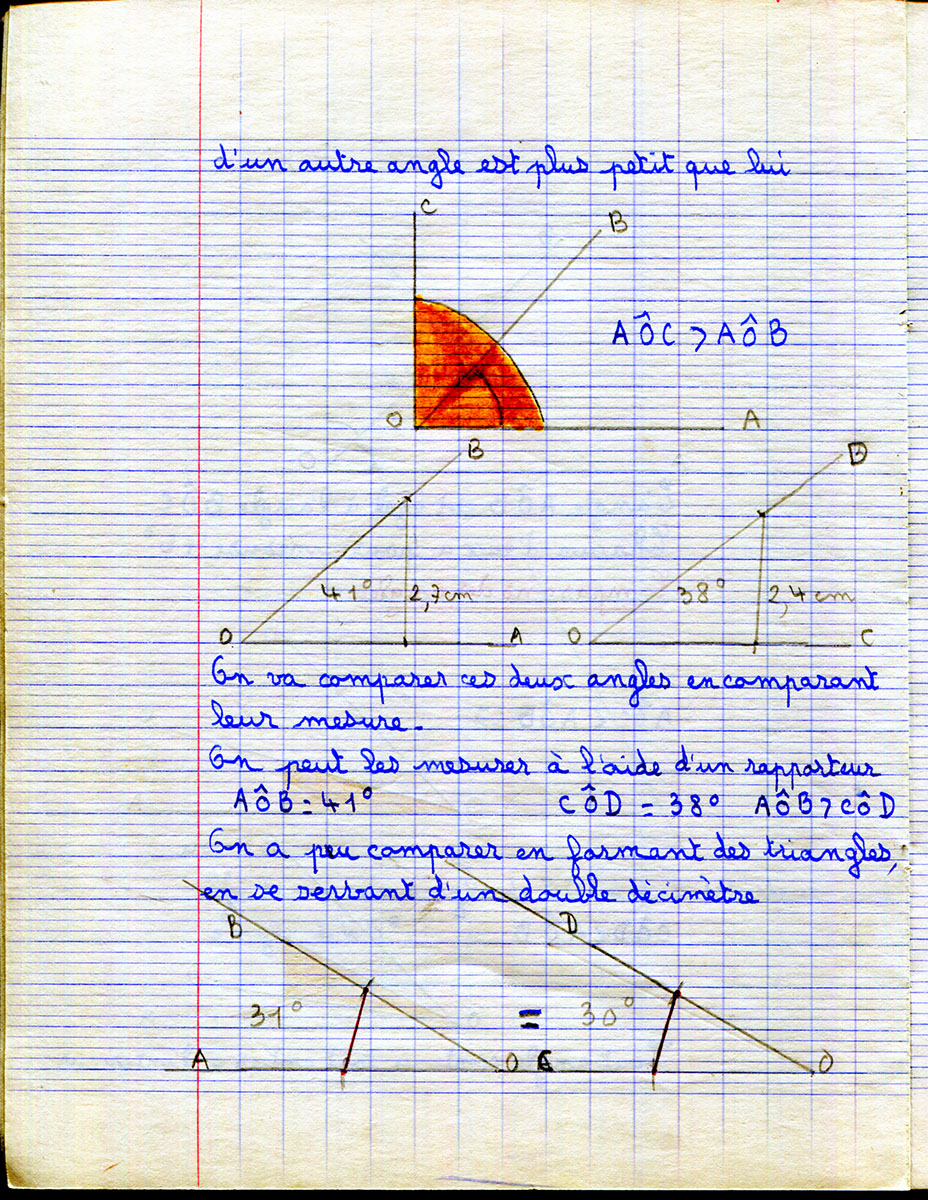 d'un autre angle est plus petit que lui
C
B
AÔC > AÔB
O
A
B
D
41°
2,7cm
38°
2,4 cm
O
A
O
C
On va comparer ces deux angles en comparant
leur mesure.
On peut les mesurer à l'aide d'un rapporteur
AÔB = 41° CÔD = 38° AÔB > CÔD
On a pu comparer en formant des triangles,
en se servant d'un double décimètre
B
D
31° = 30°
A
O
C
O